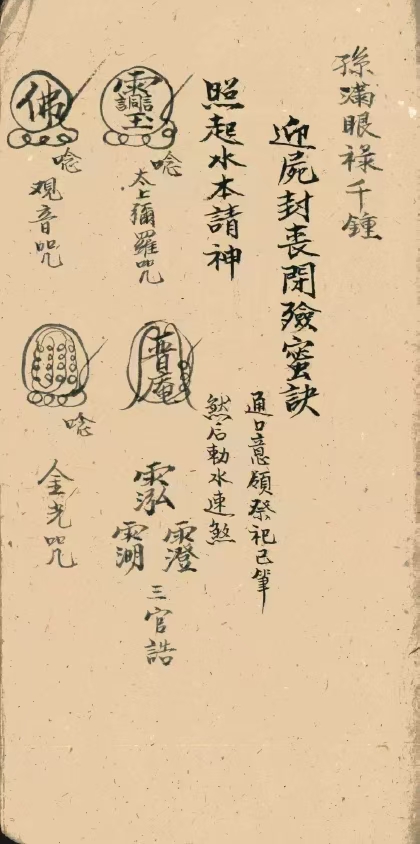 孫滿眼祿千鍾
迎屍封喪閉殮蜜訣
通口意領祭祀已筆
照起水本請神
然后勅水連煞
唸
太上彌羅咒
普庵
三官誥
佛
唸
观音咒
唸
金光咒